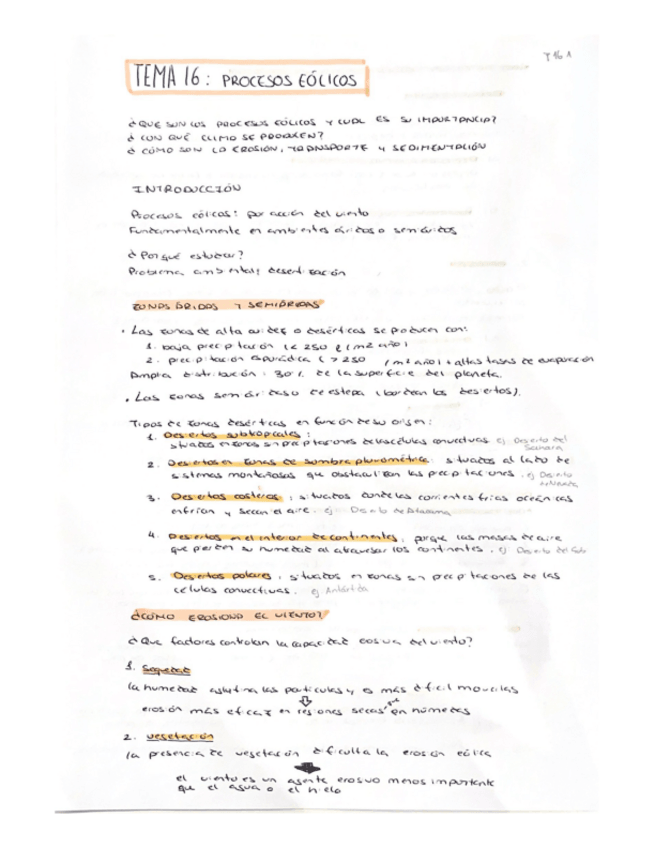 T16 1
TEMA 16: PROCESOS EÓLICOS
¿QUÉ SON LOS PROCESOS EÓLICOS Y CUÁL ES SU IMPORTANCIA?
¿CON QUÉ CLIMA SE PRODUCEN?
¿CÓMO SON LA EROSIÓN, TRANSPORTE Y SEDIMENTACIÓN
INTRODUCCIÓN
Procesos eólicos: por acción del viento
Fundamentalmente en ambientes áridos o semiáridos
¿Por qué estudiar?
Problema ambiental: desertización
ZONAS ÁRIDAS Y SEMIÁRIDAS
• Las zonas de alta aridez o desérticas se producen con:
1. baja precipitación (< 250 l/m2 año)
2. precipitación esporádica (> 250 /m2 año) + altas tasas de evaporación
Amplia distribución: 30% de la superficie del planeta.
• Las zonas semiáridas o de estepa (bordean los desiertos).
Tipos de zonas desérticas en función de su origen:
1. Desiertos subtropicales:
situados en zonas sin precipitaciones de las células convectivas. ej Desierto del
Sahara
2. Desiertos en zonas de sombra pluviométrica: situados al lado de
sistemas montañosos que obstaculizan las precipitaciones. ej Desierto
3. Desiertos costeros: situados donde las corrientes frías oceánicas
enfrían y secan el aire. ej Desierto de Atacama
4. Desiertos en el interior de continentes, porque las masas de aire
que pierden su humedad al atravesar los continentes. ej Desierto del Gobi
5. Desiertos polares: situados en zonas sin precipitaciones de las
células convectivas. ej Antártida
¿CÓMO EROSIONA EL VIENTO?
¿Qué factores controlan la capacidad erosiva del viento?
1. Sequedad
la humedad aglutina las partículas y es más difícil moverlas
erosión más eficaz en regiones secas que en húmedas
2. vegetación
la presencia de vegetación dificulta la erosión eólica
el viento es un agente erosivo menos importante
que el agua o el hielo